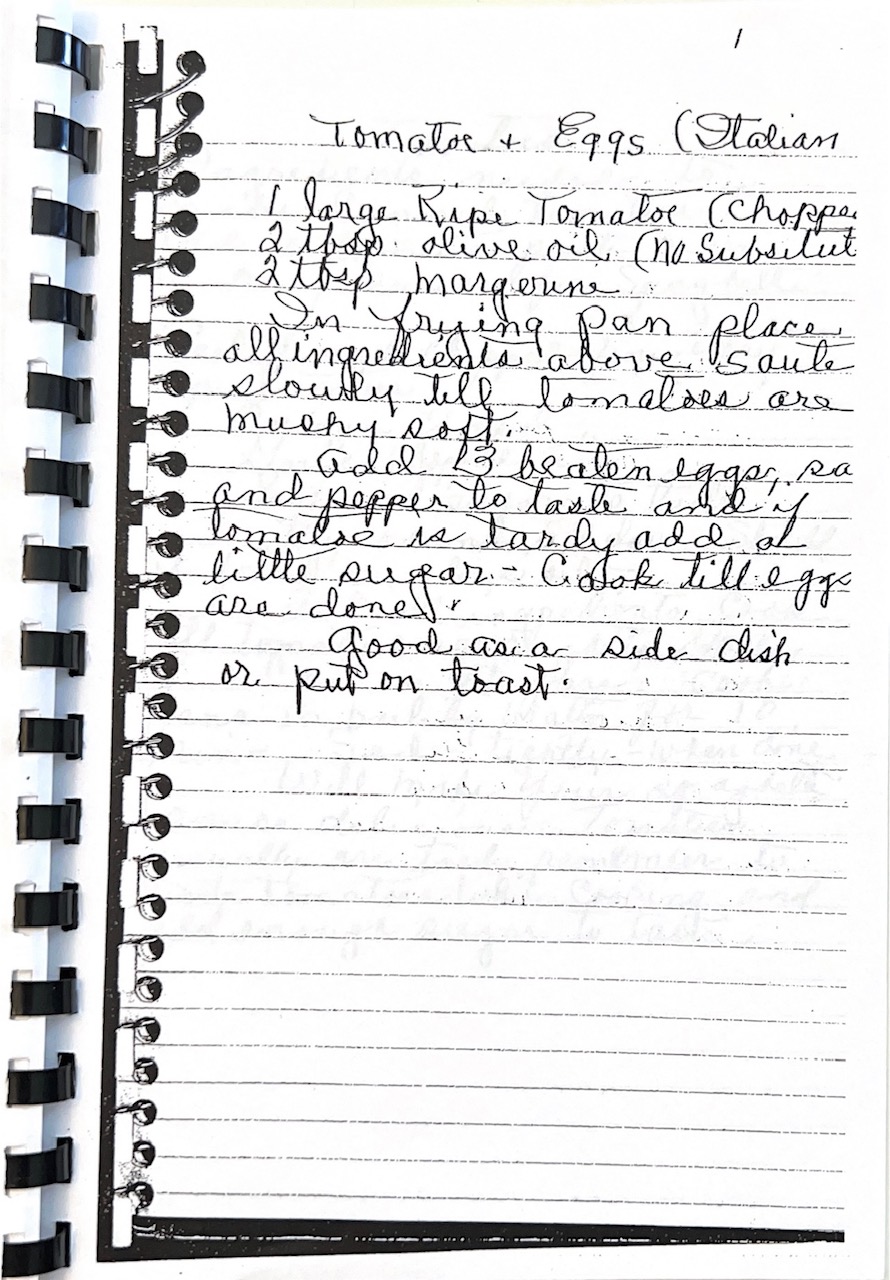 1
Tomatoe + Eggs (Italian
1 large Ripe Tomatoe (Choppe
2 tbsp olive oil (No Subsitut
2 tbsp margerine
In frying pan place
all ingredients above saute
slowly till tomatoes are
mushy soft.
add 3 beaten eggs, sa
and pepper to taste and if
tomatoe is tardy add a
little sugar - Cook till eggs
are done.
Good as a side dish
or put on toast.